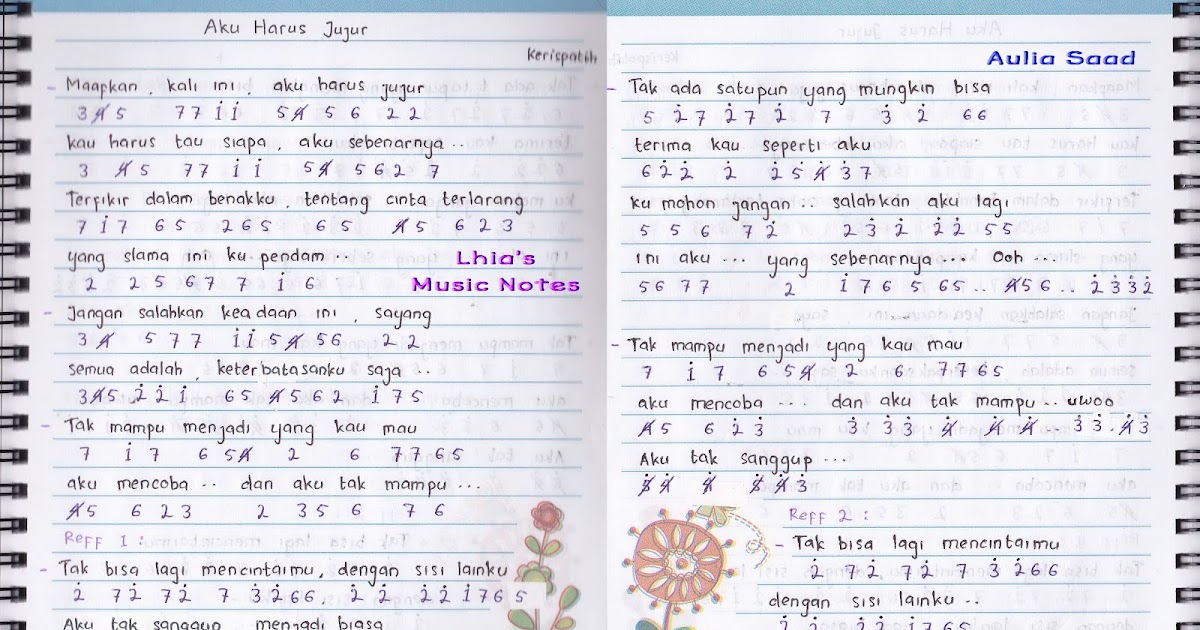 Aku Harus Jujur
Kerispatih
- Maapkan, kali ini, aku harus jujur
3 4̸ 5 7 7 i̇ i̇ 5 4̸ 5 6 2 2
kau harus tau siapa, aku sebenarnya ..
3 4̸ 5 7 7 i̇ i̇ 5 4̸ 5 6 2 7
Terfikir dalam benakku, tentang cinta terlarang
7 i̇ 7 6 5 2 6 5 6 5 4̸ 5 6 2 3
yang slama ini ku pendam ...
2 2 5 6 7 7 i̇ 6
Lhia's
Music Notes
- Jangan salahkan keadaan ini, sayang
3 4̸ 5 7 7 i̇ i̇ 5 4̸ 5 6 2 2
semua adalah, keterbatasanku saja ..
3 4̸ 5 2̇ 2̇ i̇ 6 5 4̸ 5 6 2 i̇ 7 5
- Tak mampu menjadi yang kau mau
7 i̇ 7 6 5 4̸ 2 6 7 7 6 5
aku mencoba .. dan aku tak mampu ...
4̸ 5 6 2 3 2 3 5 6 7 6
Reff 1 :
- Tak bisa lagi mencintaimu, dengan sisi lainku
2̇ 7 2̇ 7 2̇ 7 3̇ 2̇ 6 6 2̇ 2̇ 2̇ 2̇ i̇ 7 6 5
Aku tak sanggup menjadi biasa
Aulia Saad
- Tak ada satupun yang mungkin bisa
5 2̇ 7 2̇ 7 2̇ 7 3̇ 2̇ 6 6
terima kau seperti aku
6 2̇ 2̇ 2̇ 2̇ 5̇ 4̸̇ 3̇ 7
ku mohon jangan ... salahkan aku lagi
5 5 6 7 2̇ 2̇ 3̇ 2̇ 2̇ 2̇ 5 5
ini aku ... yang sebenarnya ... Ooh ...
5 6 7 7 2 i̇ 7 6 5 6 5 .. 4̸ 5 6 .. 2̇ 3̇ 3̇ 2̇
- Tak mampu menjadi yang kau mau
7 i̇ 7 6 5 4̸ 2 6 7 7 6 5
aku mencoba ... dan aku tak mampu .. uwoo
4̸ 5 6 2̇ 3̇ 3̇ 3̇ 3̇ 4̸̇ 4̸̇ 4̸̇ .. 3̇ 3̇ . 4̸̇ 3̇
Aku tak sanggup ...
Reff 2 :
- Tak bisa lagi mencintaimu
2̇ 7 2̇ 7 2̇ 7 3̇ 2̇ 6 6
dengan sisi lainku ..
2̇ 2̇ 2̇ 2̇ i̇ 7 6 5